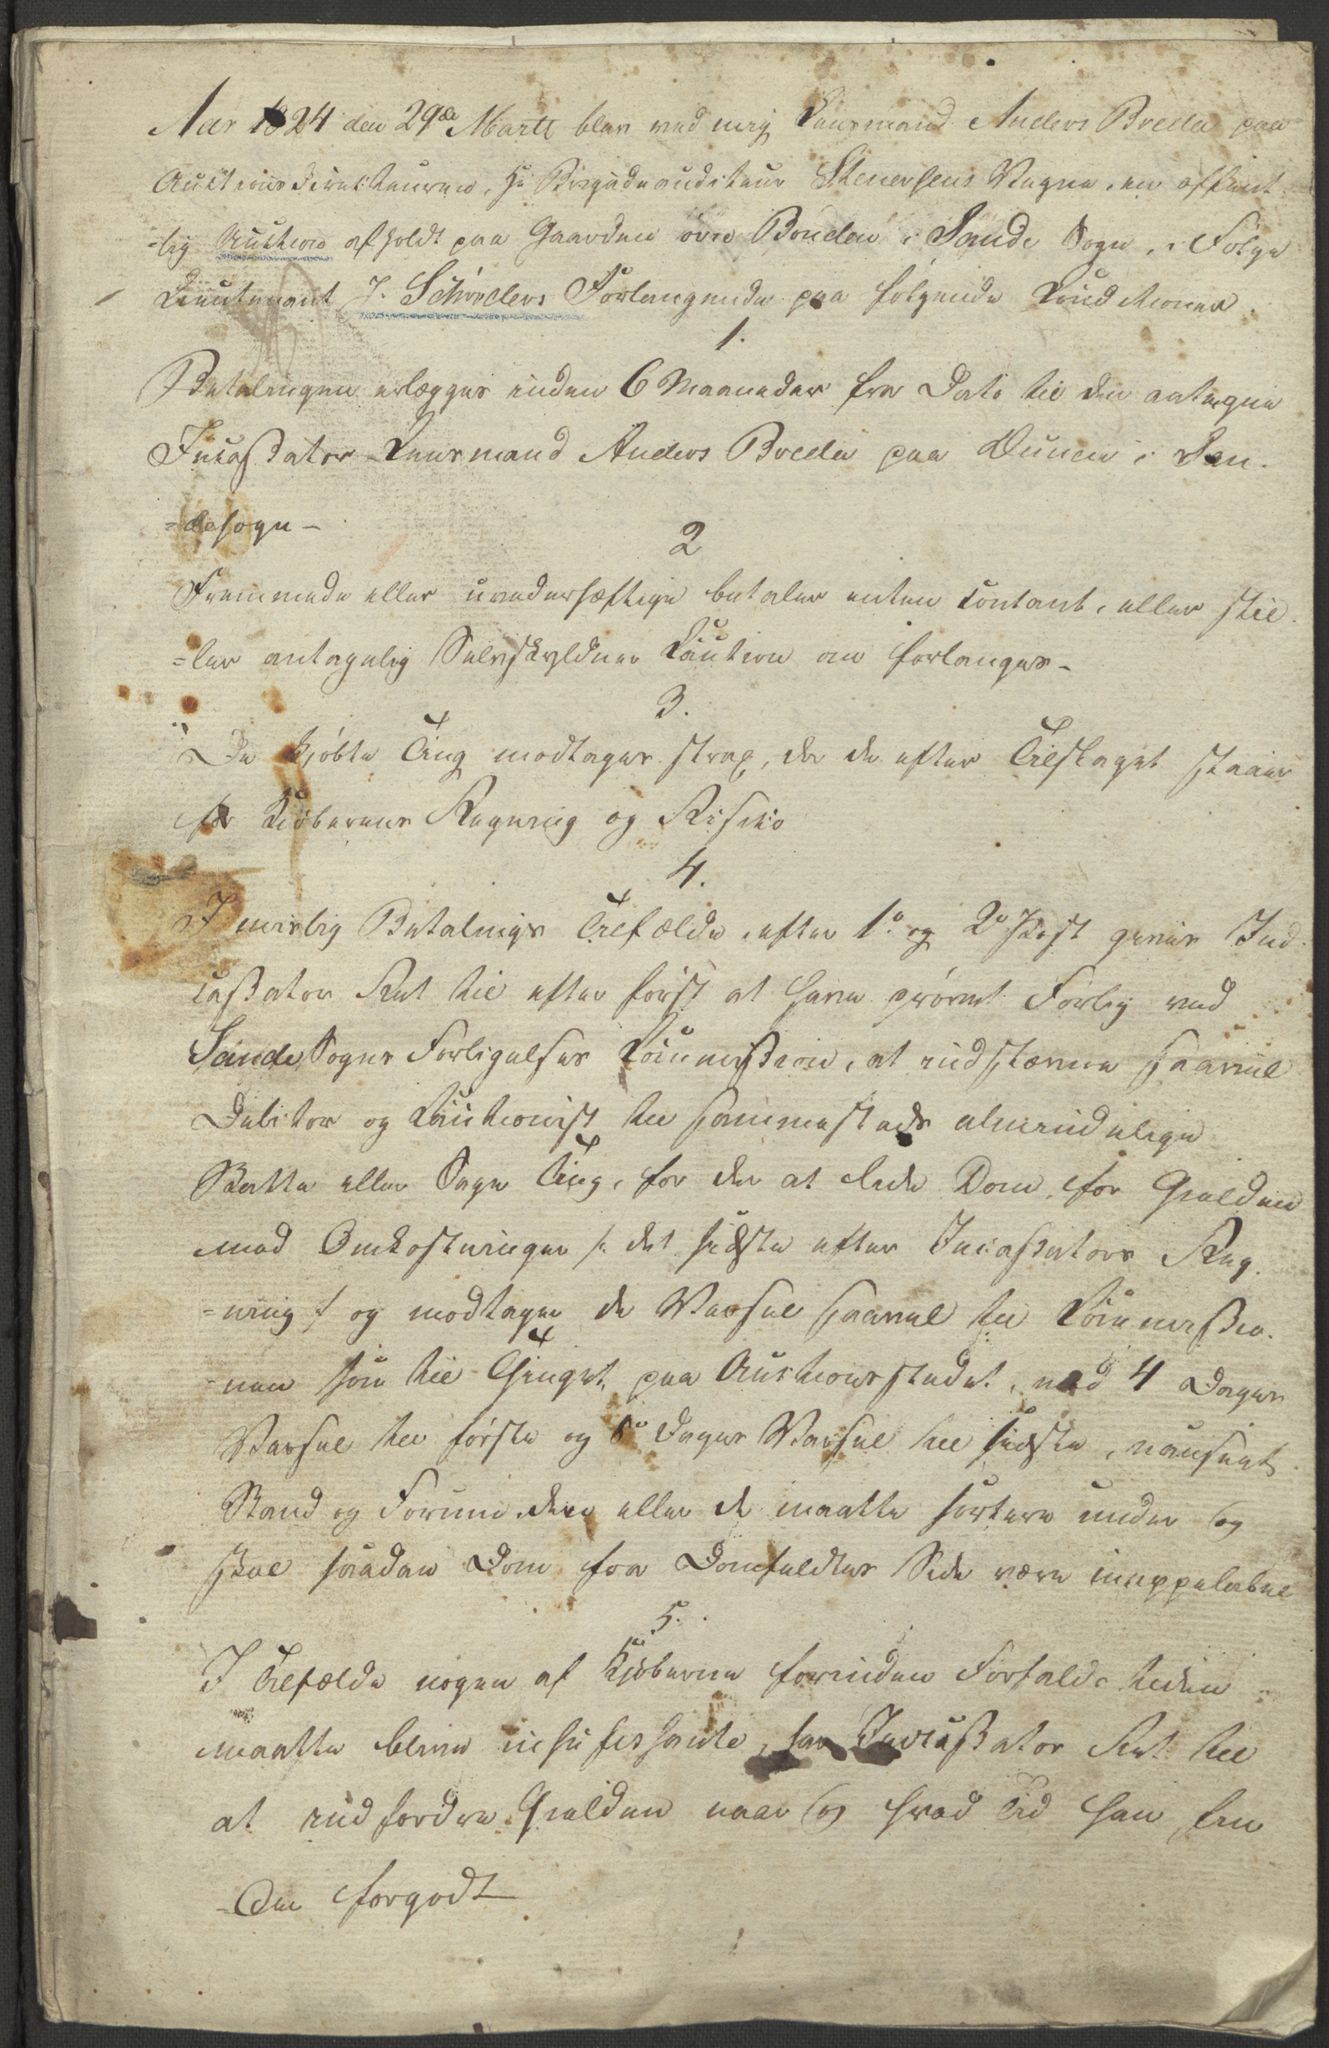 Aar 1824 den 29de Martz blev ved mig Lensmand Anders Breda paa
Auctionsdirecteuren, Hr Brigadeauditeur Stenersens Vegne, en offent
-lig Auction afholdt paa Gaarden øvre Bonden i Sande Sogn, i Følge
Lieutenant J. Schrøders Forlangende paa følgende Conditioner.
1.
Betalingen erlægges inden 6 Maaneder fra Dato til den antagne
Incassator Lensmand Anders Breda paa Dunen i San-
-desogn –
2
Fremmede eller uvederhæftige betaler enten contant, eller stil
=ler antagelig Selvskyldner Caution om forlanges –
3.
De kjøbte Ting modtages strax, da de efter Tilslaget staaer
for Kiøberens Regning og Risico
4.
I mislig Betalings Tilfælde, efter 1o og 2o Post gives Ind
cassator Ret til efter først at have prøvet Forlig ved
Sande Sogns Forligelses Commission, at indstævne saavel
Debitor og Cautionist til sammesteds almindelige
Skatte eller Sage Ting, for der at lide Dom for Gielden
med Omkostninger /: det sidste efter Incassators Reg-
=ning :/ og modtager de Varsel saavel til Commissio-
nen som til Thinget, paa Auctionsstedet, med 4 Dages
Varsel til første og 8te Dages Varsel til sidste, uanseet
Stand og Forum den eller de maatte sortere under og
skal saadan Dom fra Domfeldtes Side være inappelabel
5.
I Tilfælde nogen af Kjøberne forinden Forfaldstiden
maatte blive insufissante, har Incassator Ret til
at indfordre Gielden naar og hvad Tid han fin
-der forgodt